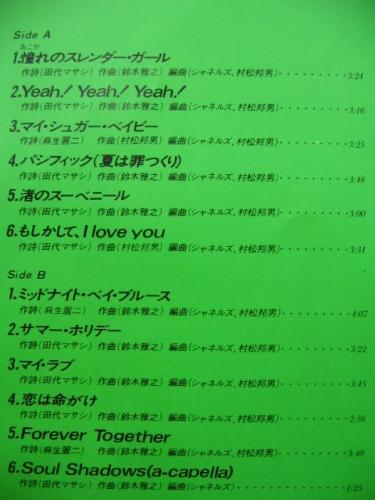 Side A
あこが
1.憧れのスレンダー・ガール
作詩(田代マサシ) 作曲(鈴木雅之) 編曲(シャネルズ、村松邦男)・・・・・・・・・3:24
2.Yeah! Yeah! Yeah!
作詩(田代マサシ) 作曲(鈴木雅之) 編曲(シャネルズ、村松邦男)・・・・・・・・・3:16
3.マイ・シュガー・ベイビー
作詩(麻生麗二) 作曲(村松邦男) 編曲(シャネルズ、村松邦男)・・・・・・・・・3:25
4.パシフィック(夏は罪つくり)
作詩(田代マサシ) 作曲(鈴木雅之) 編曲(シャネルズ、村松邦男)・・・・・・・・・3:48
5.渚のスーベニール
作詩(田代マサシ) 作曲(鈴木雅之) 編曲(シャネルズ、村松邦男)・・・・・・・・・3:00
6.もしかして、I love you
作詩(田代マサシ) 作曲(村松邦男) 編曲(シャネルズ、村松邦男)・・・・・・・・・3:31
Side B
1.ミッドナイト・ベイ・ブルース
作詩(麻生麗二) 作曲(鈴木雅之) 編曲(シャネルズ、村松邦男)・・・・・・・・・4:07
2.サマー・ホリデー
作詩(田代マサシ) 作曲(鈴木雅之) 編曲(シャネルズ、村松邦男)・・・・・・・・・3:22
3.マイ・ラブ
作詩(田代マサシ) 作曲(鈴木雅之) 編曲(シャネルズ、村松邦男)・・・・・・・・・3:45
4.恋は命がけ
作詩(田代マサシ) 作曲(鈴木雅之) 編曲(シャネルズ、村松邦男)・・・・・・・・・2:56
5.Forever Together
作詩(麻生麗二) 作曲(鈴木雅之) 編曲(シャネルズ、村松邦男)・・・・・・・・・3:40
6.Soul Shadows(a-capella)
作詩(田代マサシ) 作曲(鈴木雅之) 編曲(シャネルズ)・・・・・・・・・1:25